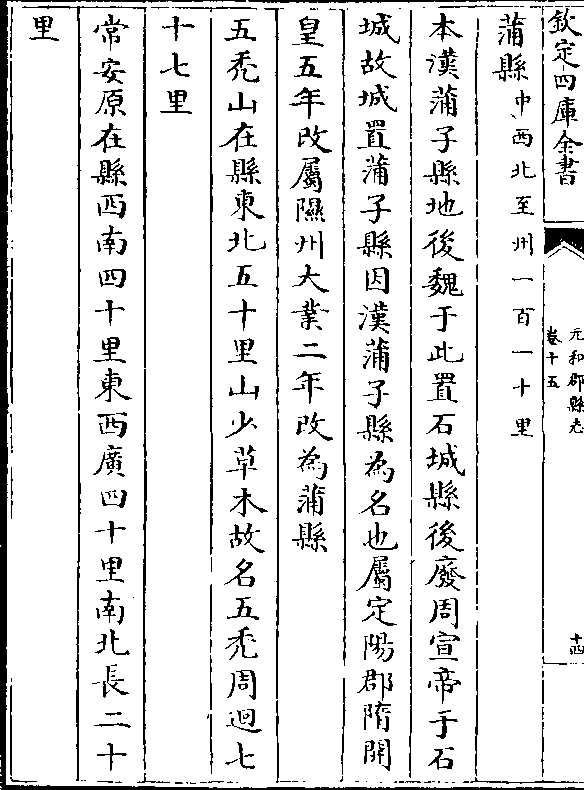 欽定四庫全書
元和郡縣志
卷十五
十四
蒲縣中西北至州一百一十里
本漢蒲子縣地後魏于此置石城縣後廢周宣帝于石
城故城置蒲子縣因漢蒲子縣為名也屬定陽郡隋開
皇五年改屬隰州大業二年改為蒲縣
五禿山在縣東北五十里山少草木故名五禿周迴七
十七里
常安原在縣西南四十里東西廣四十里南北長二十
里